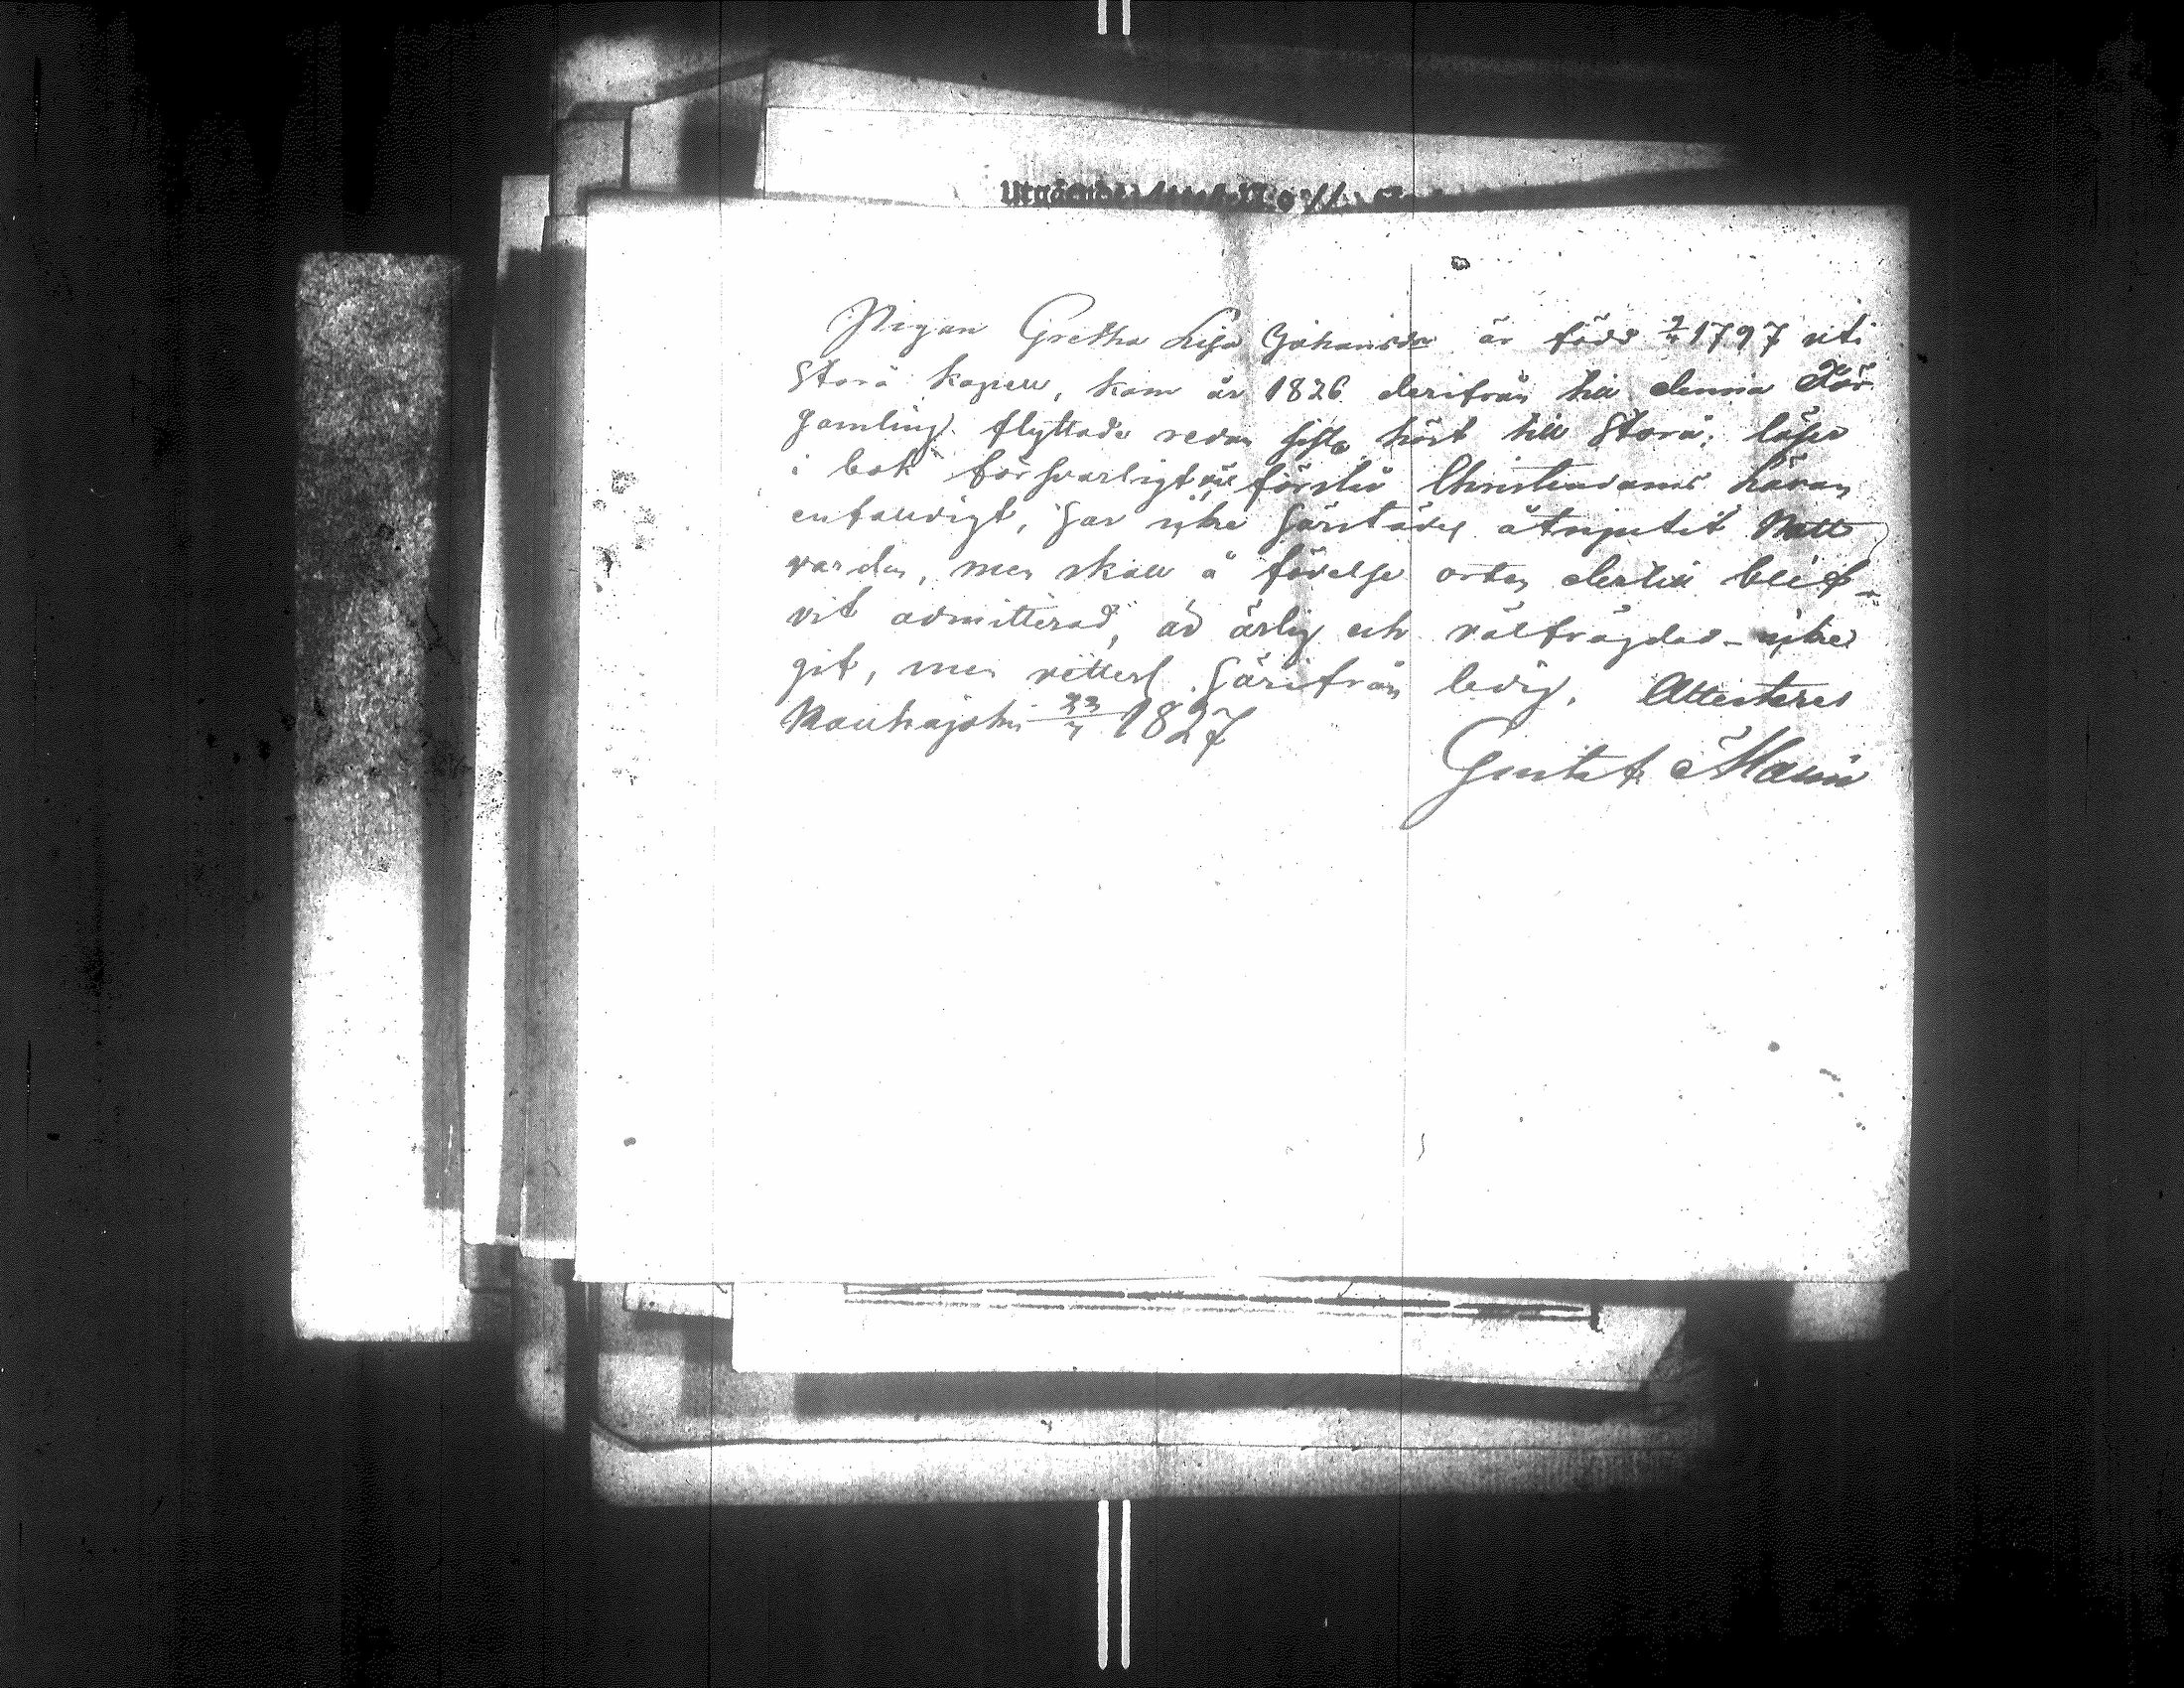 Utgående
Pigan Gretha Lisa Johansdr är född 2/11 1797 uti
Storå kapell, kom år 1826 derifrån till denna För
samling. flyttade redan sistl. höst till Storå; läser
i bok försvarligt, förstår Christendoms Läran
enfaldigt, har icke härstädes åtnjutit Natt
varden, men skall å födelse orten dertill blif-
vit admitterad, är ärlig och välfrägdad - icke
gift, men vetterl. härifrån ledig. Attesteras
Kauhajoki 23/7 1827
Gustaf